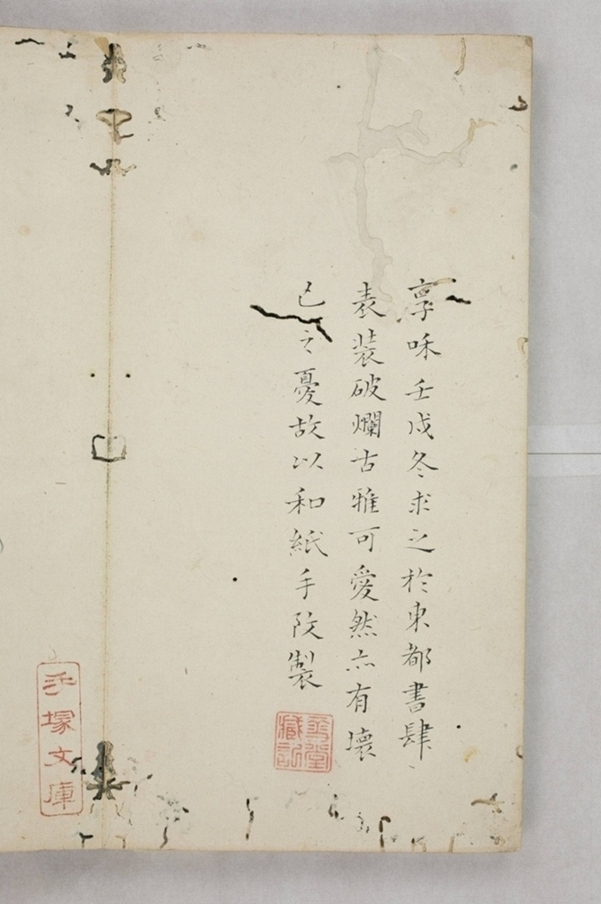 享和壬戌冬求之於東都書肆
表装破爛古雅可愛然亦有壊
已之憂故以和紙手改製
手塚文庫